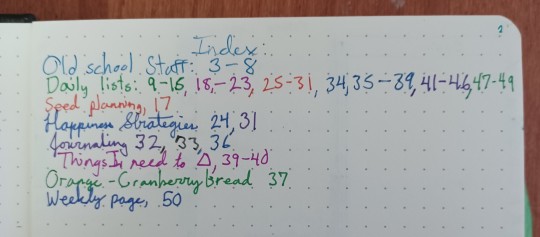 2
Index:
Old school Staff: 3-8
Daily lists: 9-16, 18,-23, 25-31, 34,35-39, 41-46,47-49
Seed planning, 17
Happiness Strategies 24, 31
Journaling 32, 33, 36
Things I need to Δ, 39-40
Orange-Cranberry Bread 37
Weekly page, 50